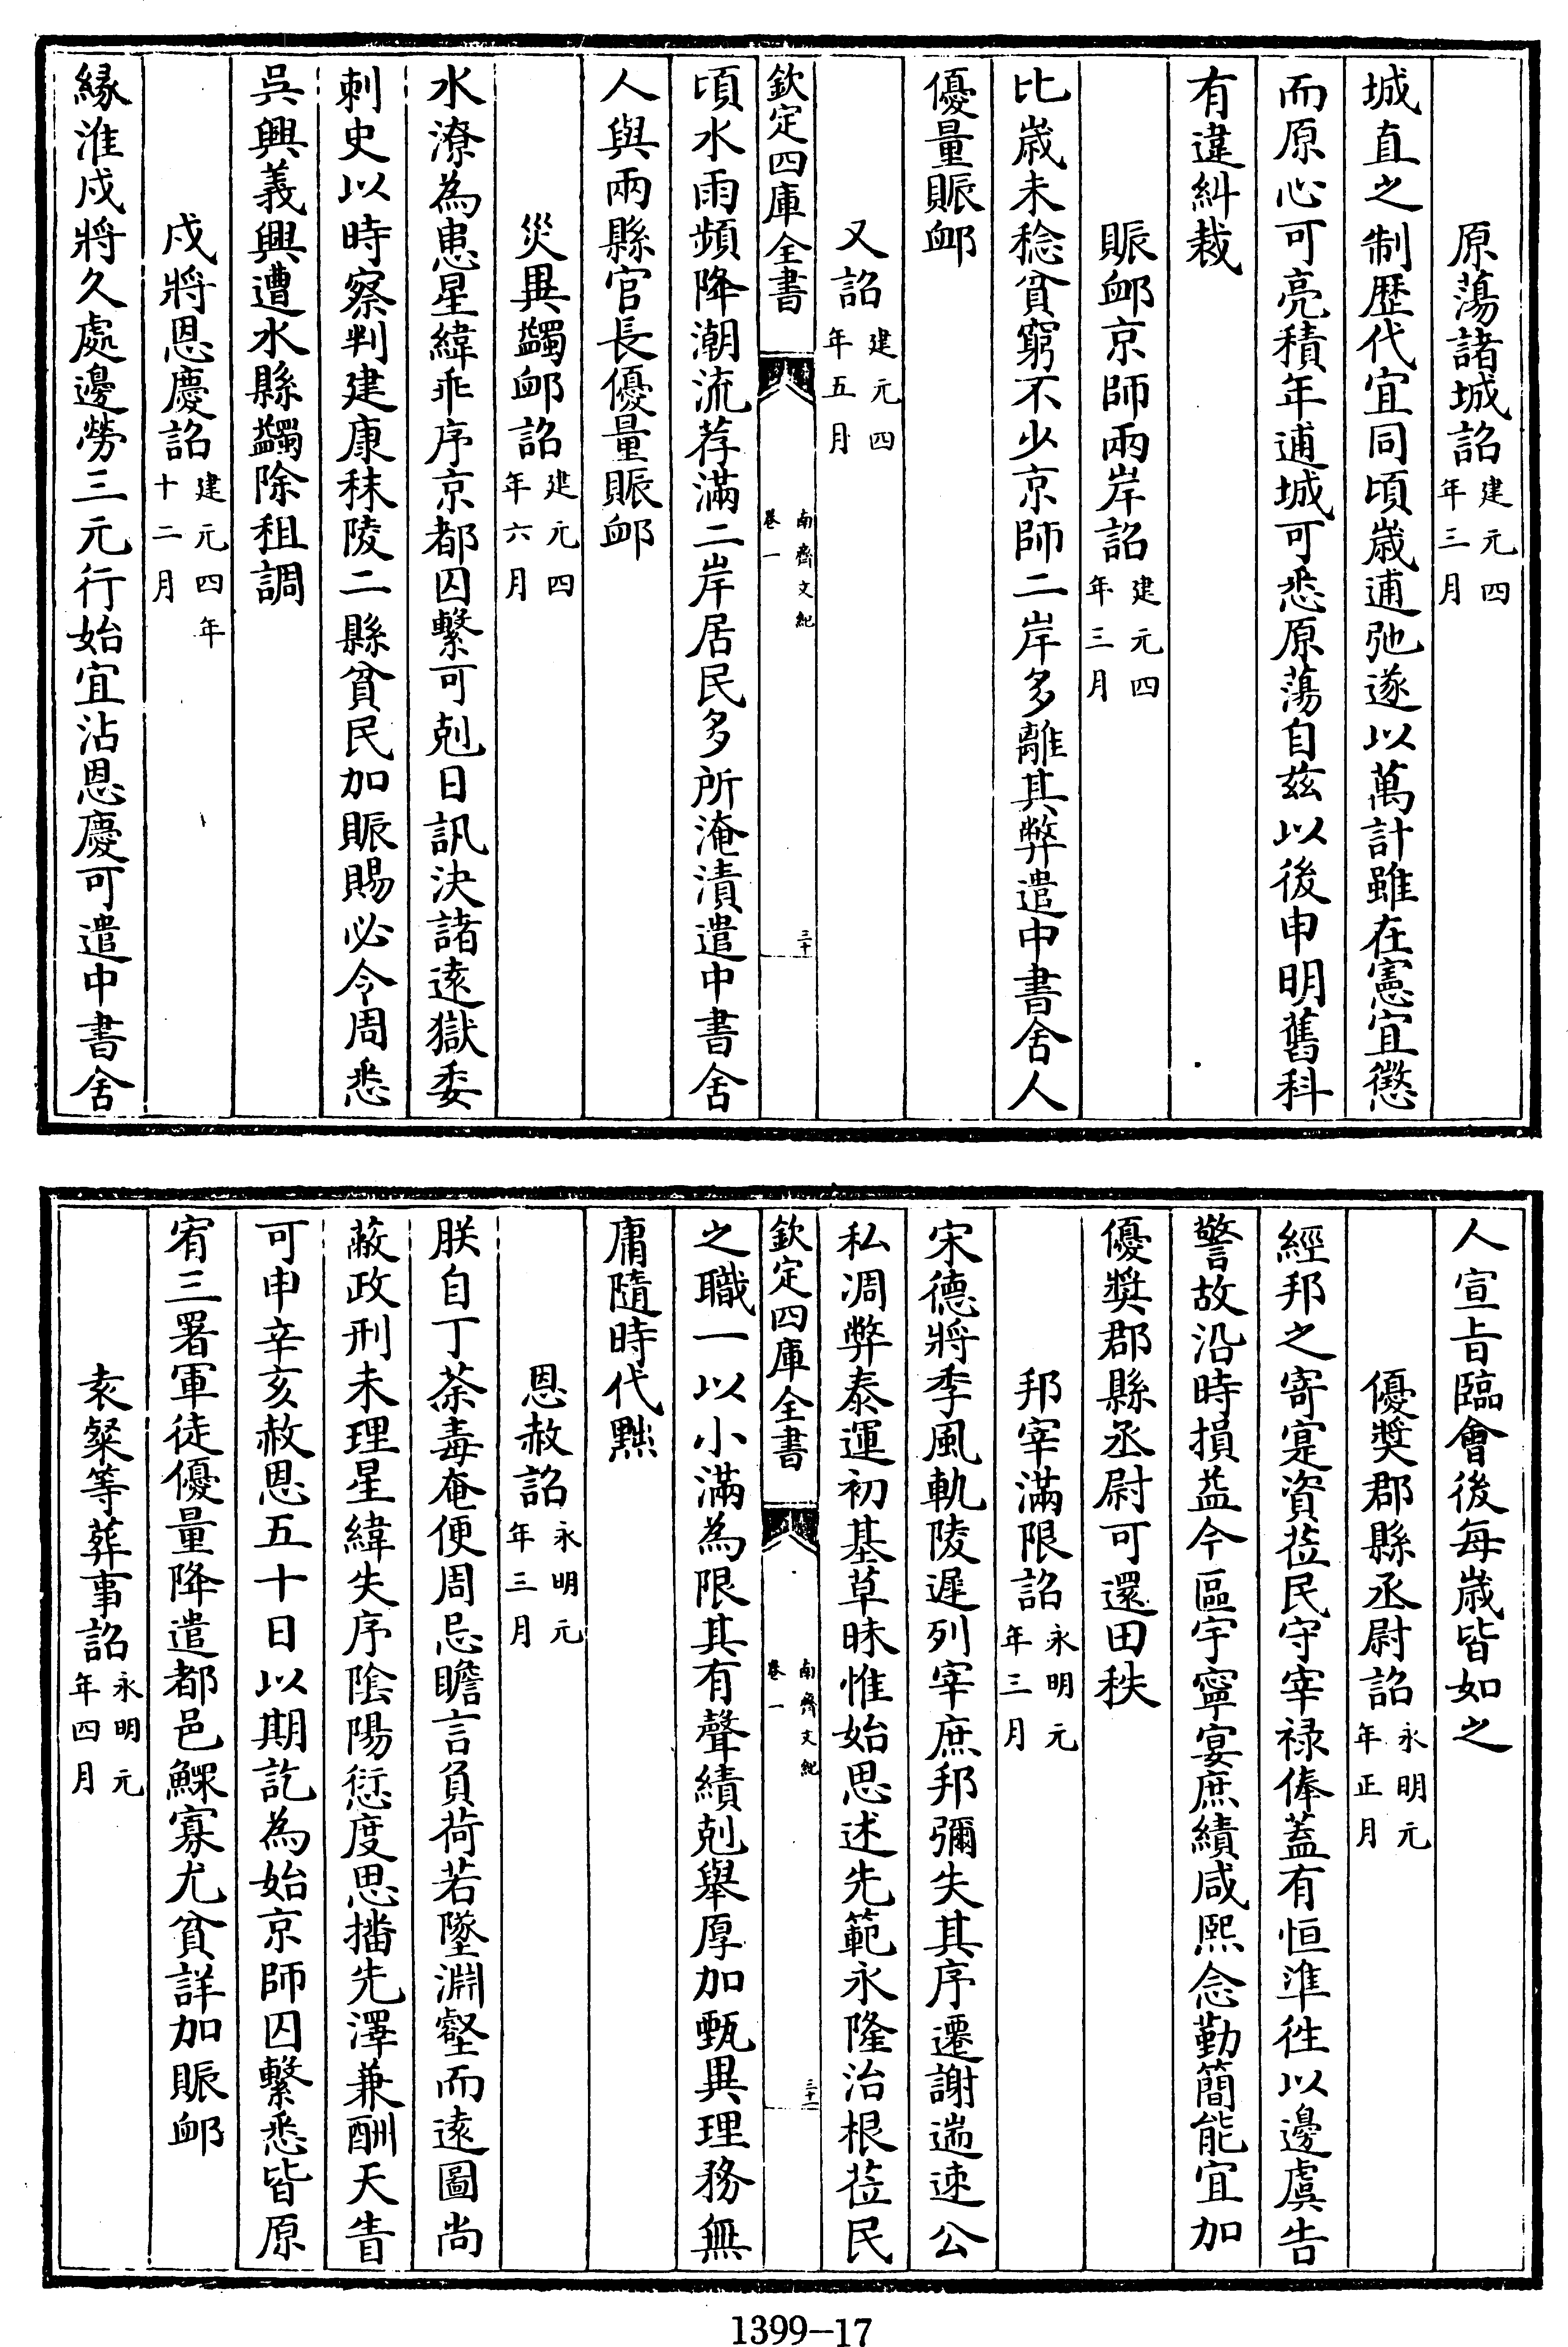 原蕩諸城詔建元四年三月
城直之制歴代宜同頃歳逋弛遂以萬計雖在憲宜懲
而原心可亮積年逋城可悉原蕩自兹以後申明舊科
有違糾裁
賑䘏京師兩岸詔建元四年三月
比歳未稔貧窮不少京師二岸多離其弊遣中書舍人
優量賑䘏
又詔建元四年五月
欽定四庫全書
南齊文紀
卷一
三十
頃水雨頻降潮流荐滿二岸居民多所淹漬遣中書舍
人與兩縣官長優量賑䘏
災異蠲䘏詔建元四年六月
水潦為患星緯乖序京都囚繫可剋日訊決諸逺獄委
刺史以時察判建康秣陵二縣貧民加賑賜必令周悉
吳興義興遭水縣蠲除租調
戍將恩慶詔建元四年十二月
縁淮戍將久處邊勞三元行始宜沾恩慶可遣中書舍
人宣㫖臨會後每歳皆如之
優奬郡縣丞尉詔永明元年正月
經邦之寄寔資莅民守宰禄俸蓋有恒準徃以邊虞告
警故沿時損益今區宇寧宴庶績咸熙念勤簡能宜加
優奬郡縣丞尉可還田秩
邦宰滿限詔永明元年三月
宋德將季風軌陵遲列宰庶邦彌失其序遷謝遄速公
私凋弊泰運初基草昧惟始思述先範永隆治根莅民
欽定四庫全書
南齊文紀
卷一
三十一
之職一以小滿為限其有聲績剋舉厚加甄異理務無
庸隨時代黜
恩赦詔永明元年三月
朕自丁荼毒奄便周忌瞻言負荷若墜淵壑而逺圖尚
蔽政刑未理星緯失序陰陽愆度思播先澤兼酬天眚
可申辛亥赦恩五十日以期訖為始京師囚繫悉皆原
宥三署軍徒優量降遣都邑鰥寡尤貧詳加賑䘏
袁粲等葬事詔永明元年四月
1399—17